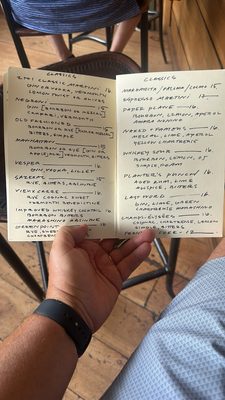 CLASSICS
2:1 CLASSIC MARTINI 16
GIN OR VODKA, VERMOUTH
LEMON TWIST OR OLIVES
NEGRONI 16
GIN [BOURBON OR MEZCAL]
CAMPARI, VERMOUTH
OLD FASHIONED 16
BOURBON OR RYE
BITTERS, SIMPLE
MANHATTAN 15
BOURBON OR RYE
VERMOUTH, BITTERS
VESPER 16
GIN, VODKA, LILLET
SAZERAC 15
RYE, BITTERS, ABSINTHE
VIEUX CARRE 16
RYE, COGNAC, SWEET
VERMOUTH, BENEDICTINE
IMPROVED WHISKEY COCKTAIL 16
BOURBON, BITTERS
MARASCHINO, ABSINTHE
GREENPOINT
RYE, SWEET
CHARTREUSE
CLASSICS
MARGARITA/PALOMA/COSMO 15
ESPRESSO MARTINI 17
PAPER PLANE 16
BOURBON, LEMON, APEROL
AMARO NONINO
NAKED + FAMOUS 16
MEZCAL, LIME, APEROL
YELLOW CHARTREUSE
WHISKEY SOUR 16
BOURBON, LEMON,
SIMPLE,
PLANTER'S PUNCH 16
AGED RUM, LIME
ALLSPICE, BITTERS
LAST WORD 16
GIN, LIME, GREEN
CHARTREUSE, MARASCHINO
CHAMPS-ELYSEES 16
COGNAC, CHARTREUSE, LEMON
SIMPLE, BITTERS
12